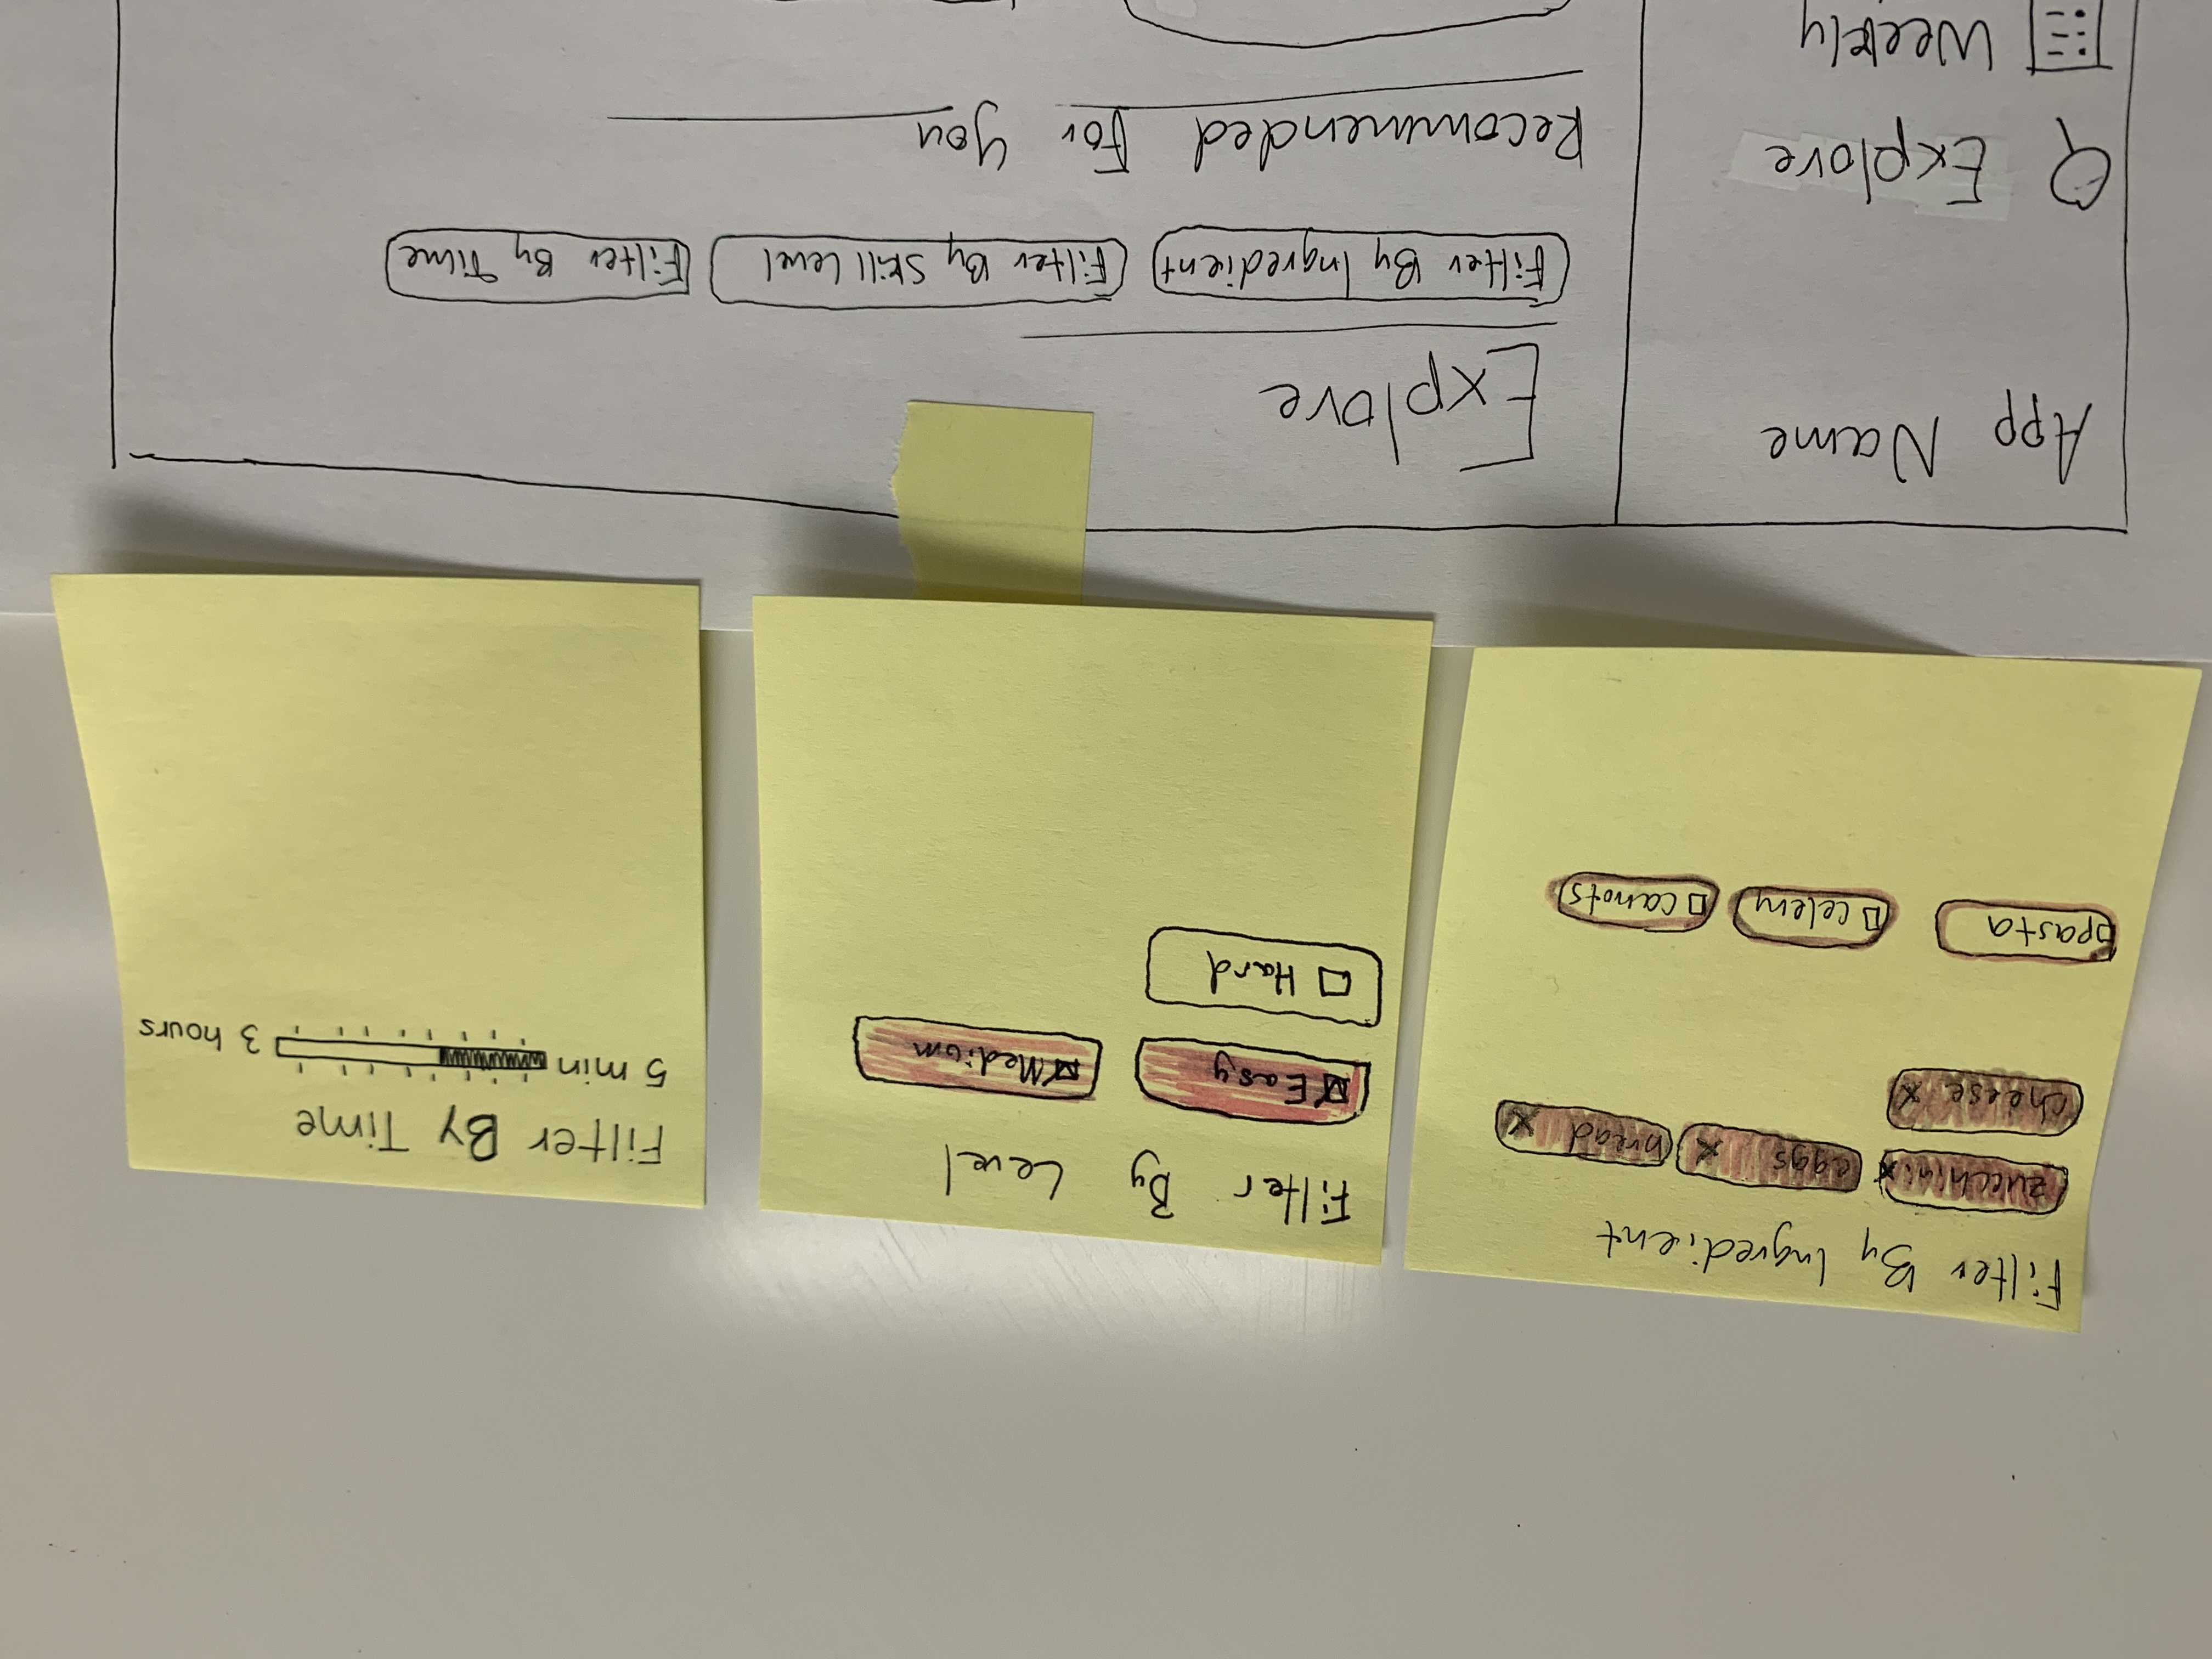 Filter By Ingredient
zucchini x eggs x bread x
cheese x
pasta celery carrots
Filter By Level
Easy Medium
Hard
Filter By Time
5 min 3 hours
App Name
Explore
Weekly
Explore
Filter By Ingredient Filter By Skill Level Filter By Time
Recommended For You